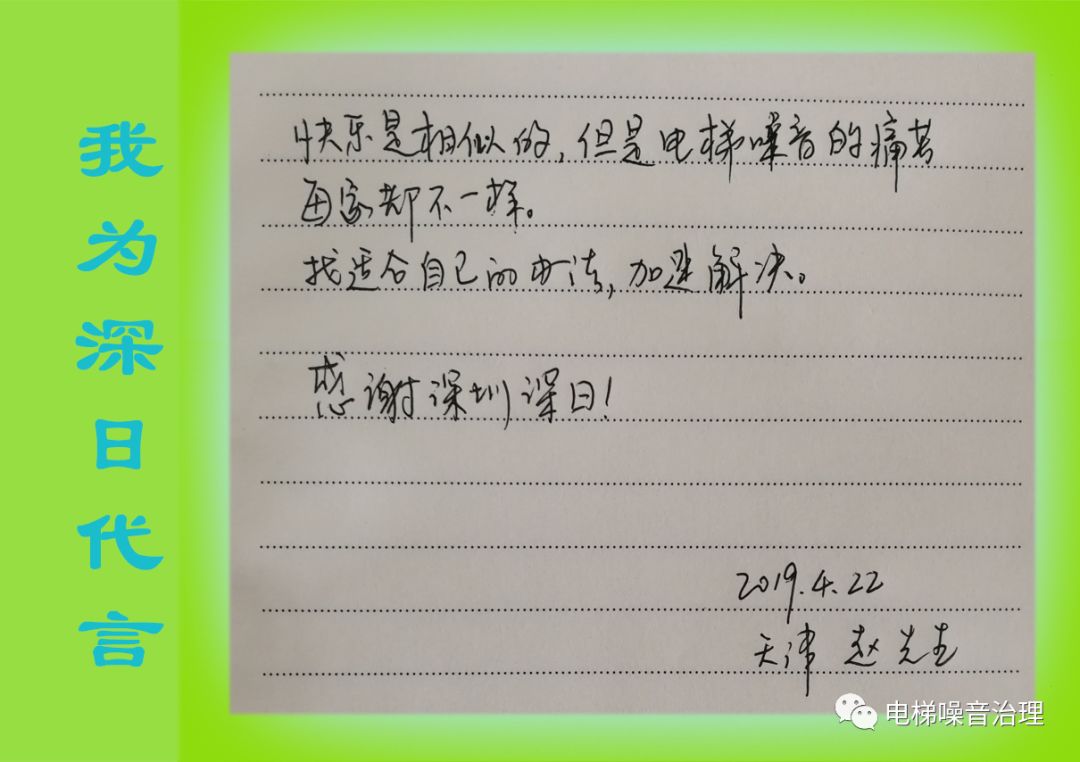 我为深日代言
快乐是相似的，但是电梯噪音的痛苦
每家却不一样。
找适合自己的办法，加速解决。
感谢深圳深日！
2019.4.22
天津 赵先生
电梯噪音治理